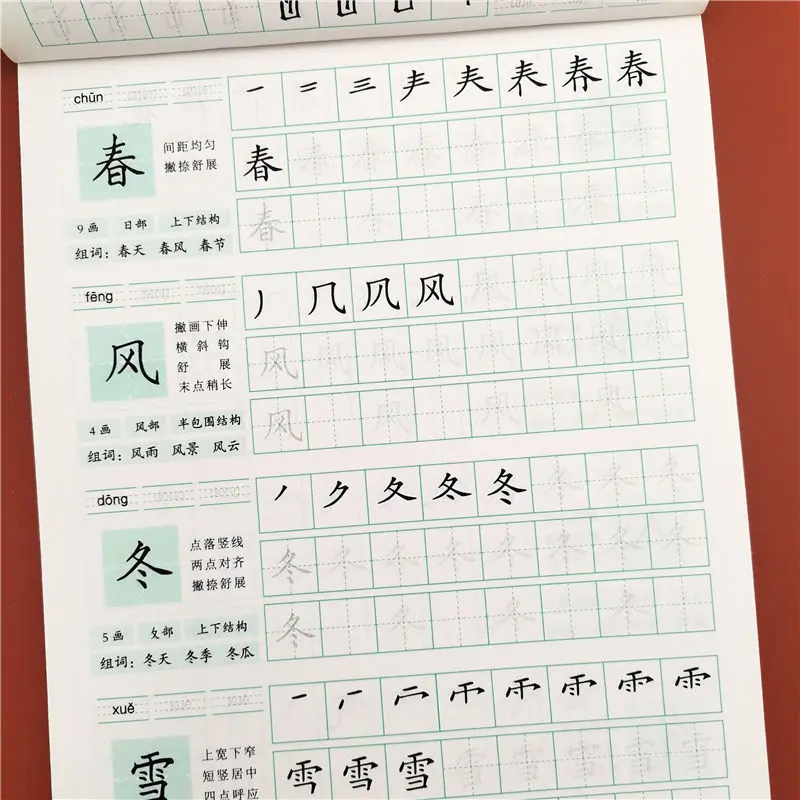 chūn
一 二 三 𡗗 春
春
间距均匀
撇捺舒展
春
春
9画 日部 上下结构
组词：春天 春风 春节
fēng
丿 几 风
风
撇画下伸
横斜钩
舒展
末点稍长
风
风
4画 风部 半包围结构
组词：风雨 风景 风云
dōng
丿 ク 夂 冬
冬
点落竖线
两点对齐
撇捺舒展
冬
冬
5画 夂部 上下结构
组词：冬天 冬季 冬瓜
xuě
一
雪
上宽下窄
短竖居中
四点呼应
雪